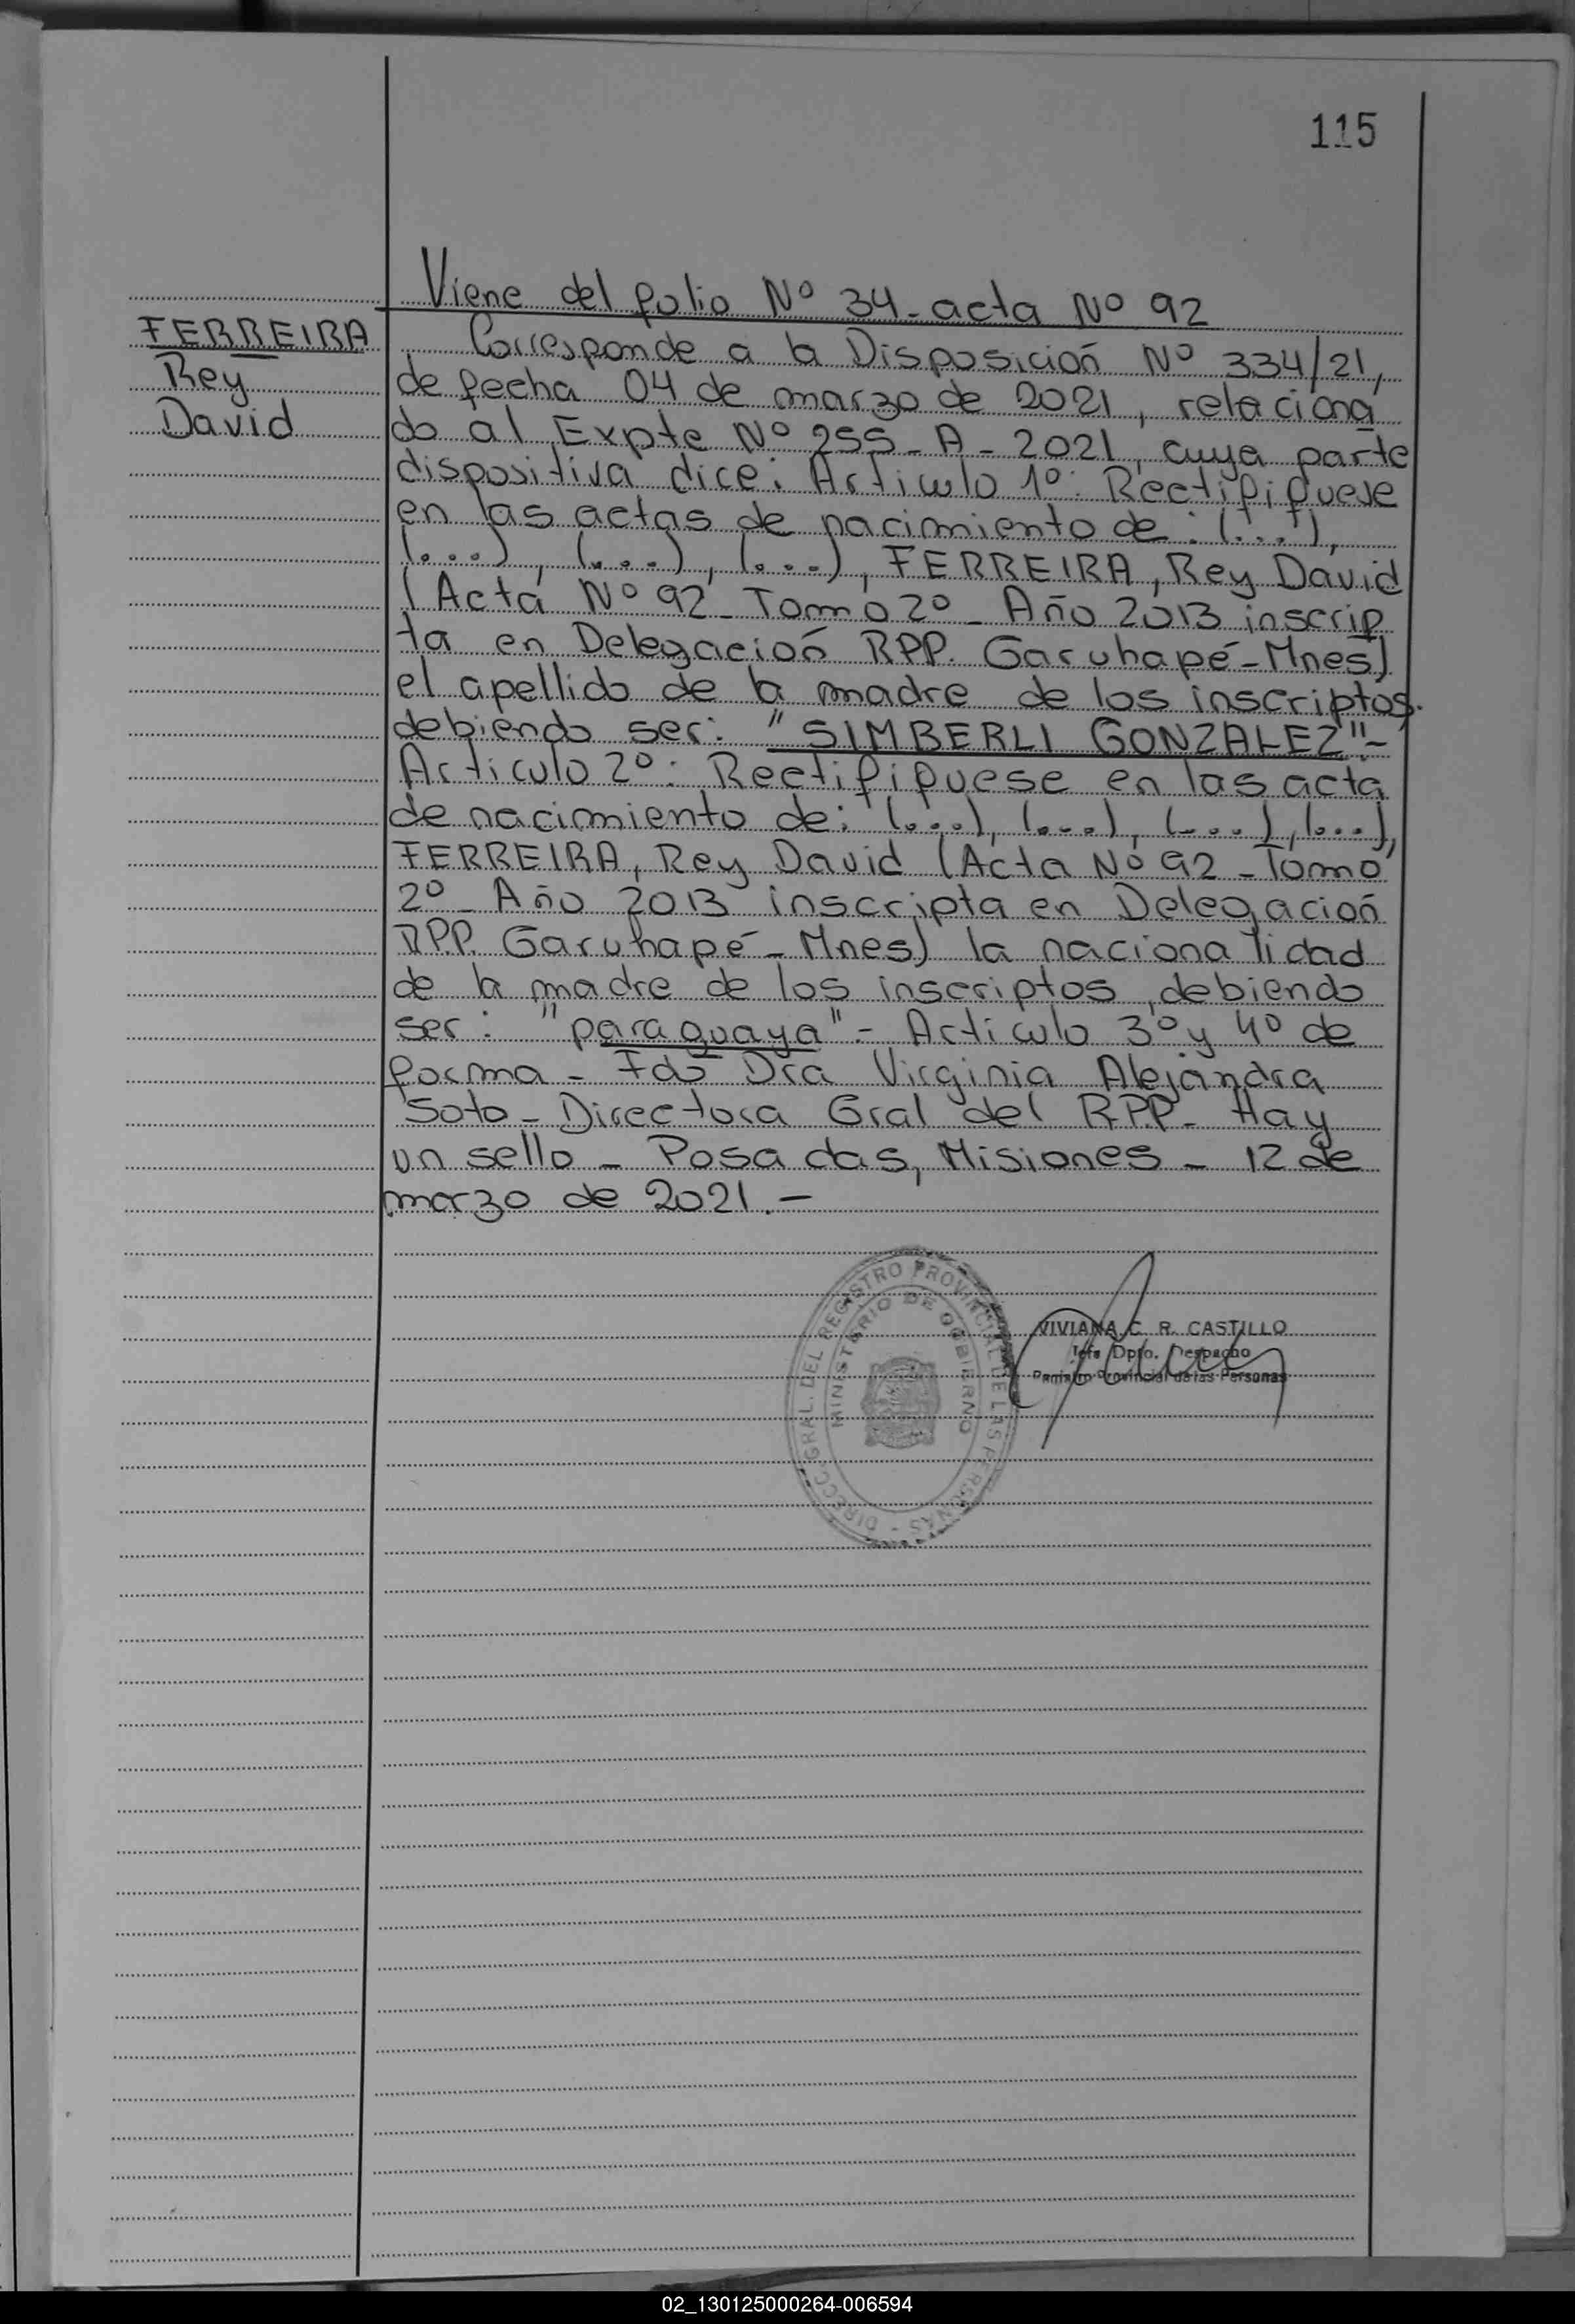 115
Viene del folio Nº 34 - acta Nº 92
FERREIRA
Rey
David
Corresponde a la Disposición Nº 334/21,
de fecha 04 de marzo de 2021, relaciona
do al Expte Nº 255 - A - 2021, cuya parte
dispositiva dice: Articulo 1º: Rectifiquese
en las actas de nacimiento de: (...),
(...), (...), (...), FERREIRA, Rey David
(Acta Nº 92 - Tomo 2º - Año 2013 inscrip
ta en Delegación RPP. Garuhapé - Mnes)
el apellido de la madre de los inscriptos.
debiendo ser: "SIMBERLI GONZALEZ" -
Articulo 2º: Rectifiquese en las acta
de nacimiento de: (...), (...), (...), (...),
FERREIRA, Rey David (Acta Nº 92 - Tomo
2º - Año 2013 inscripta en Delegación
RPP. Garuhapé - Mnes) la nacionalidad
de la madre de los inscriptos, debiendo
ser: "paraguaya" - Articulo 3º y 4º de
forma - Fdo Dra Virginia Alejandra
Soto - Directora Gral del R.P.P - Hay
un sello - Posadas, Misiones - 12 de
marzo de 2021. -
DIRECC. GRAL. DEL REGISTRO PROVINCIAL DE LAS PERSONAS -
MINISTERIO DE GOBIERNO
VIVIANA C. R. CASTILLO
Jefa Dpto. Despacho
Registro Provincial de las Personas
02_130125000264-006594